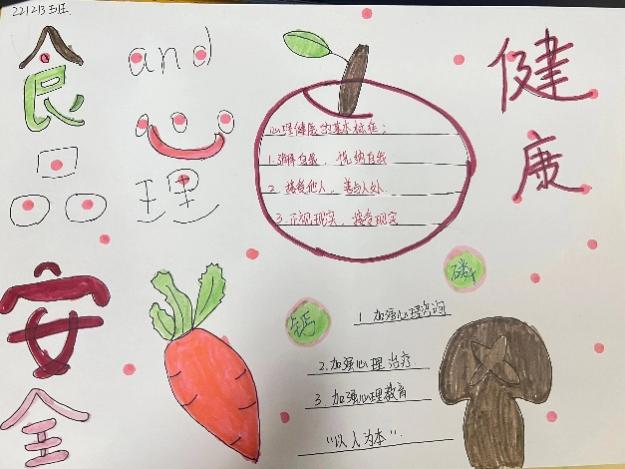 221213班
食品安全
and
心理
健康
心理健康的基本标准：
1.了解自我、悦纳自我
2.接受他人、善与人处
3.正视现实、接受现实
磷
钙
1.加强心理咨询
2.加强心理治疗
3.加强心理教育
"以人为本"